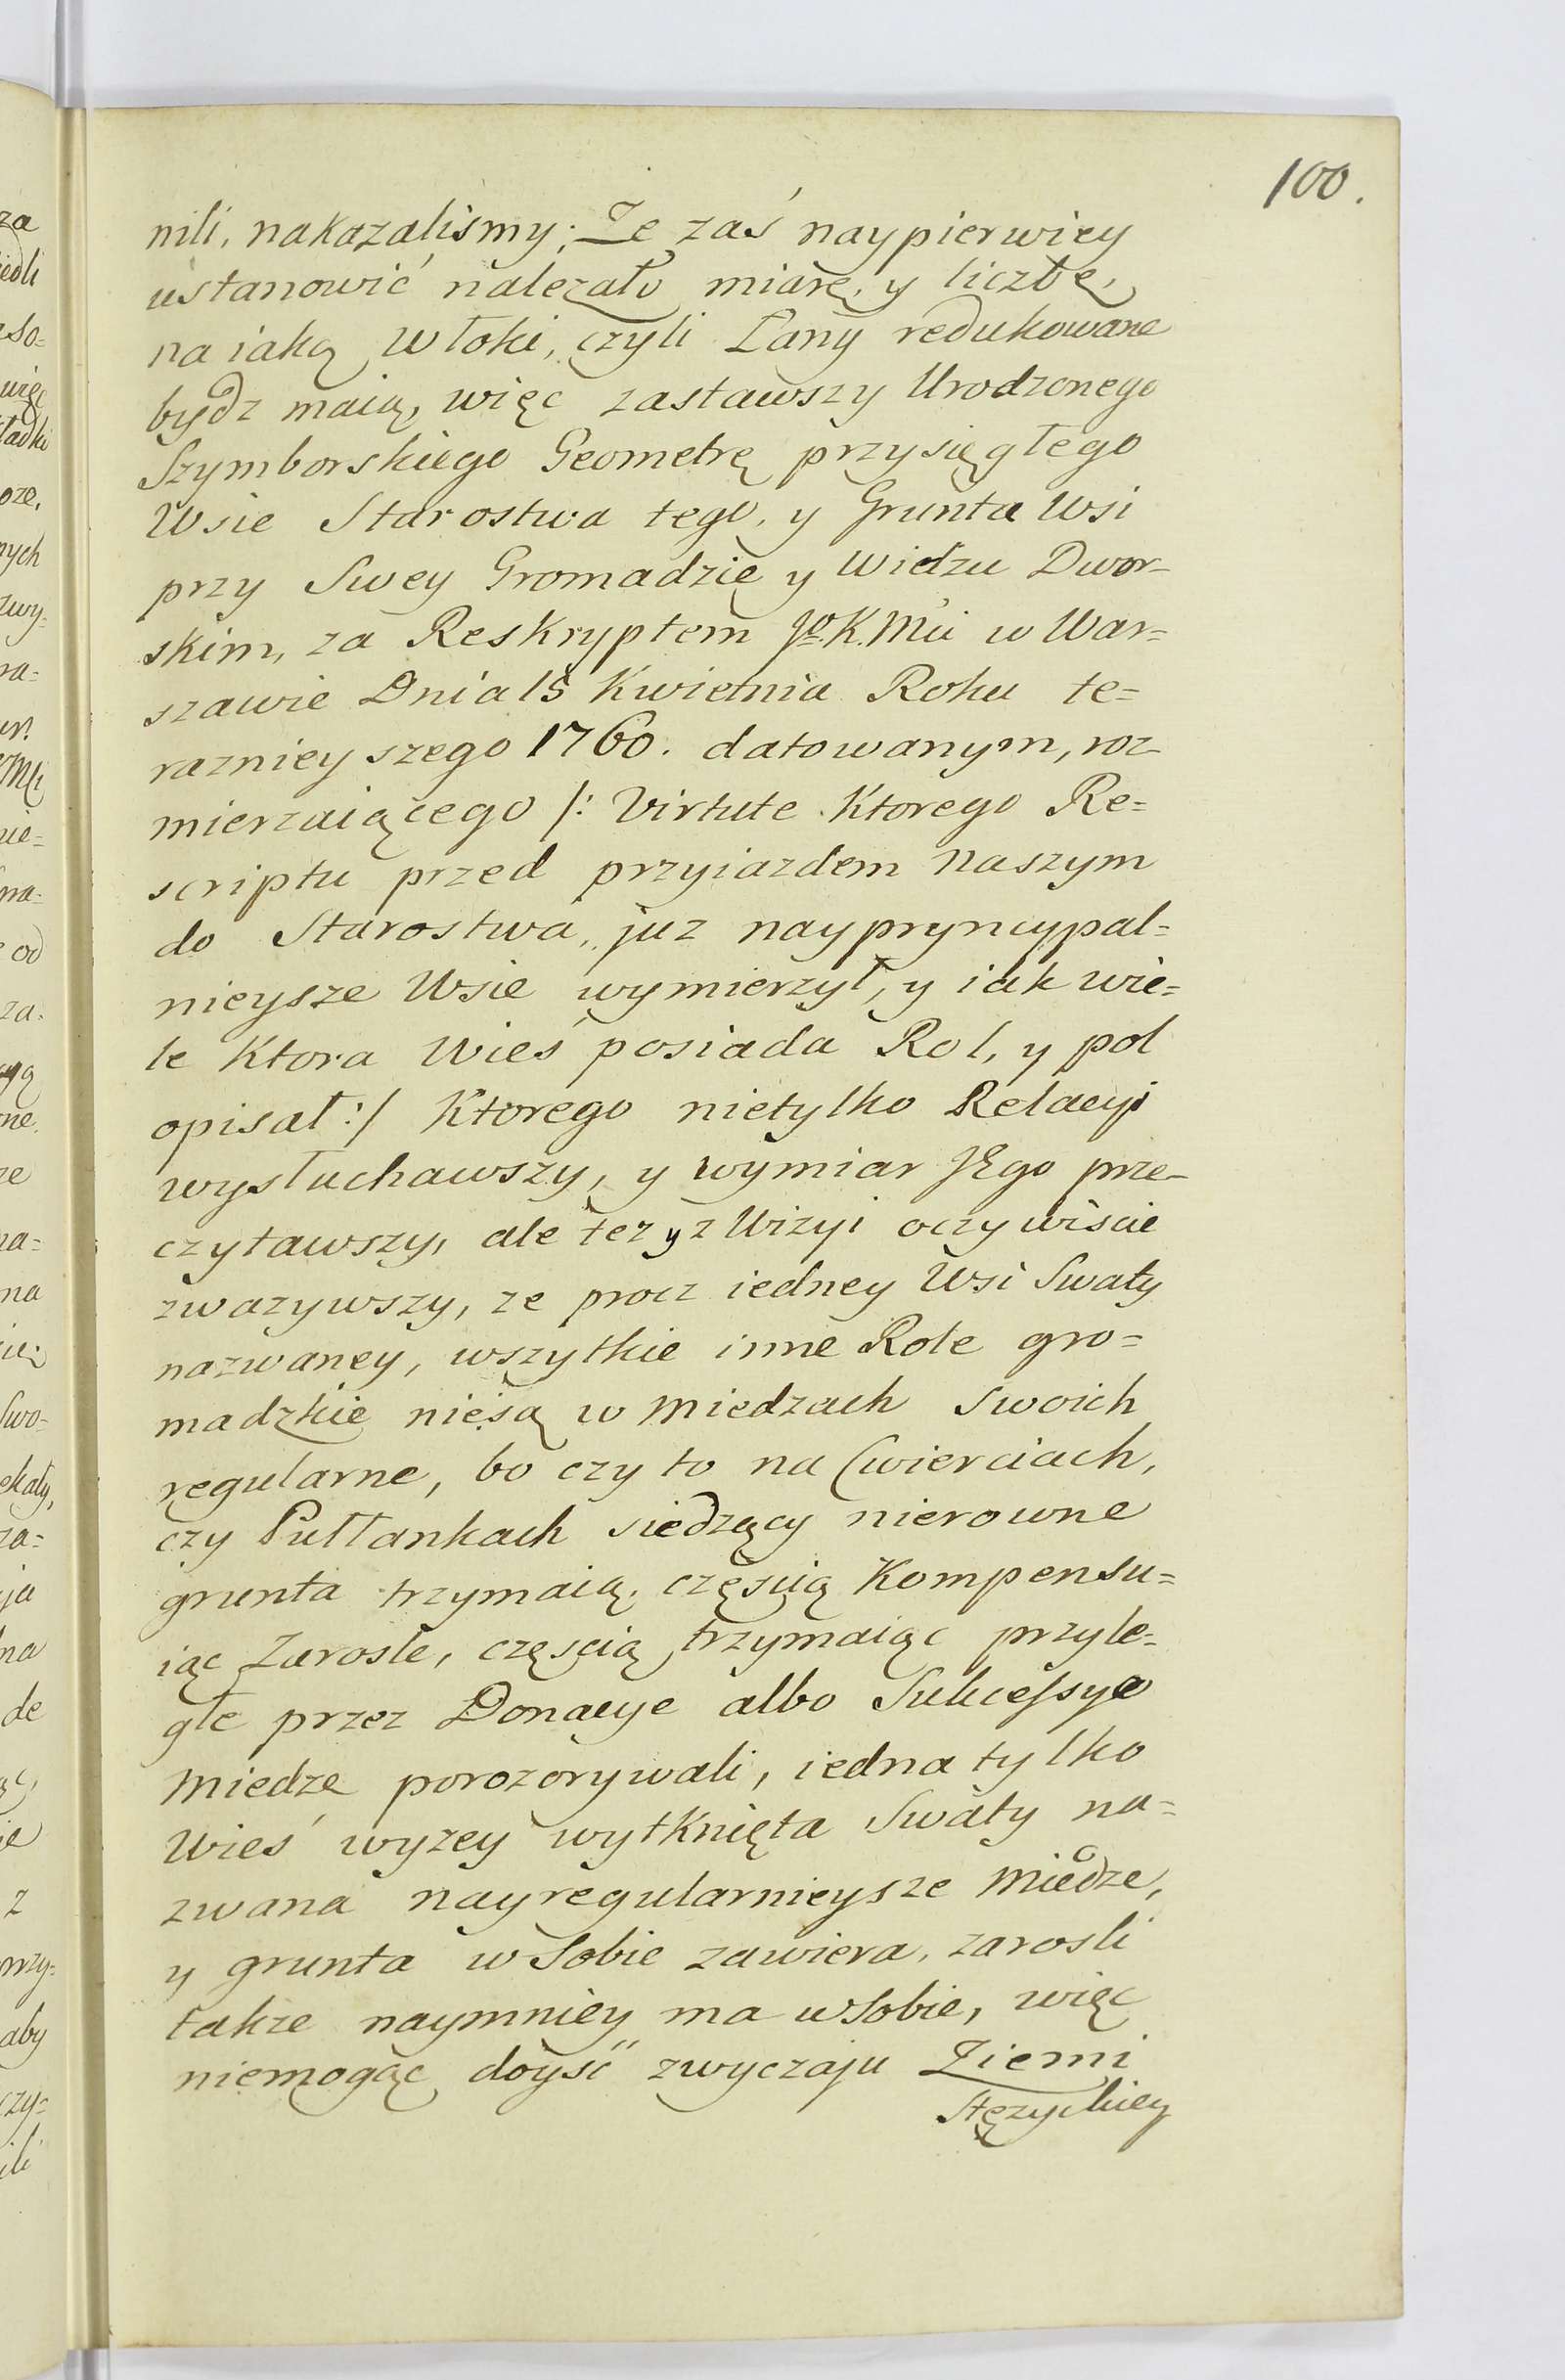 100.
nili, nakazalismy; Ze zaś naypierwiey
ustanowić nalezało miarę, y liczbę,
na iaką Włoki, czyli Łany redukowane
bydz maią, więc zastawszy Urodzonego
Szymborskiego Geometrę przysięgłego
Wsie Starostwa tego, y Grunta Wsi
przy Swey Gromadzie y Widzu Dwor-
skim, za Reskryptem Jo. K. Mci w War=
szawie Dnia 15 Kwietnia Roku te=
razniey szego 1760. datowanym, roz
mierzaiącego /: Virtute Ktorego Re=
scriptu przed przyiazdem naszym
do Starostwa, juz naypryncypal=
nieysze Wsie wymierzył, y iak wie=
le Ktora Wieś posiada Rol, y pol
opisał :/ Ktorego nietylko Relacyi
wysłuchawszy, y wymiar JEgo prze-
czytawszy, ale tez y z Wizyi oczywiscie
zwazywszy, ze procz iedney Wsi Swaty
nazwaney, wszytkie inne Role gro=
madzkie niesą w Miedzach Swoich
regularne, bo czy to na Cwierciach,
czy Pułłankach siedzący nierowne
grunta trzymaią, częscią Kompensu=
iąc Zarosle, częscią trzymaiąc przyle=
głe przez Donacye albo Sukcessye
Miedze porozorywali, iedna tylko
Wieś wyzey wytknięta Swaty na=
zwana nayregularnieysze Miedze,
y grunta w Sobie zawiera, zarosli
takze naymniey ma w Sobie, więc
niemogąc doyść zwyczaju Ziemi
Stęzyckiey